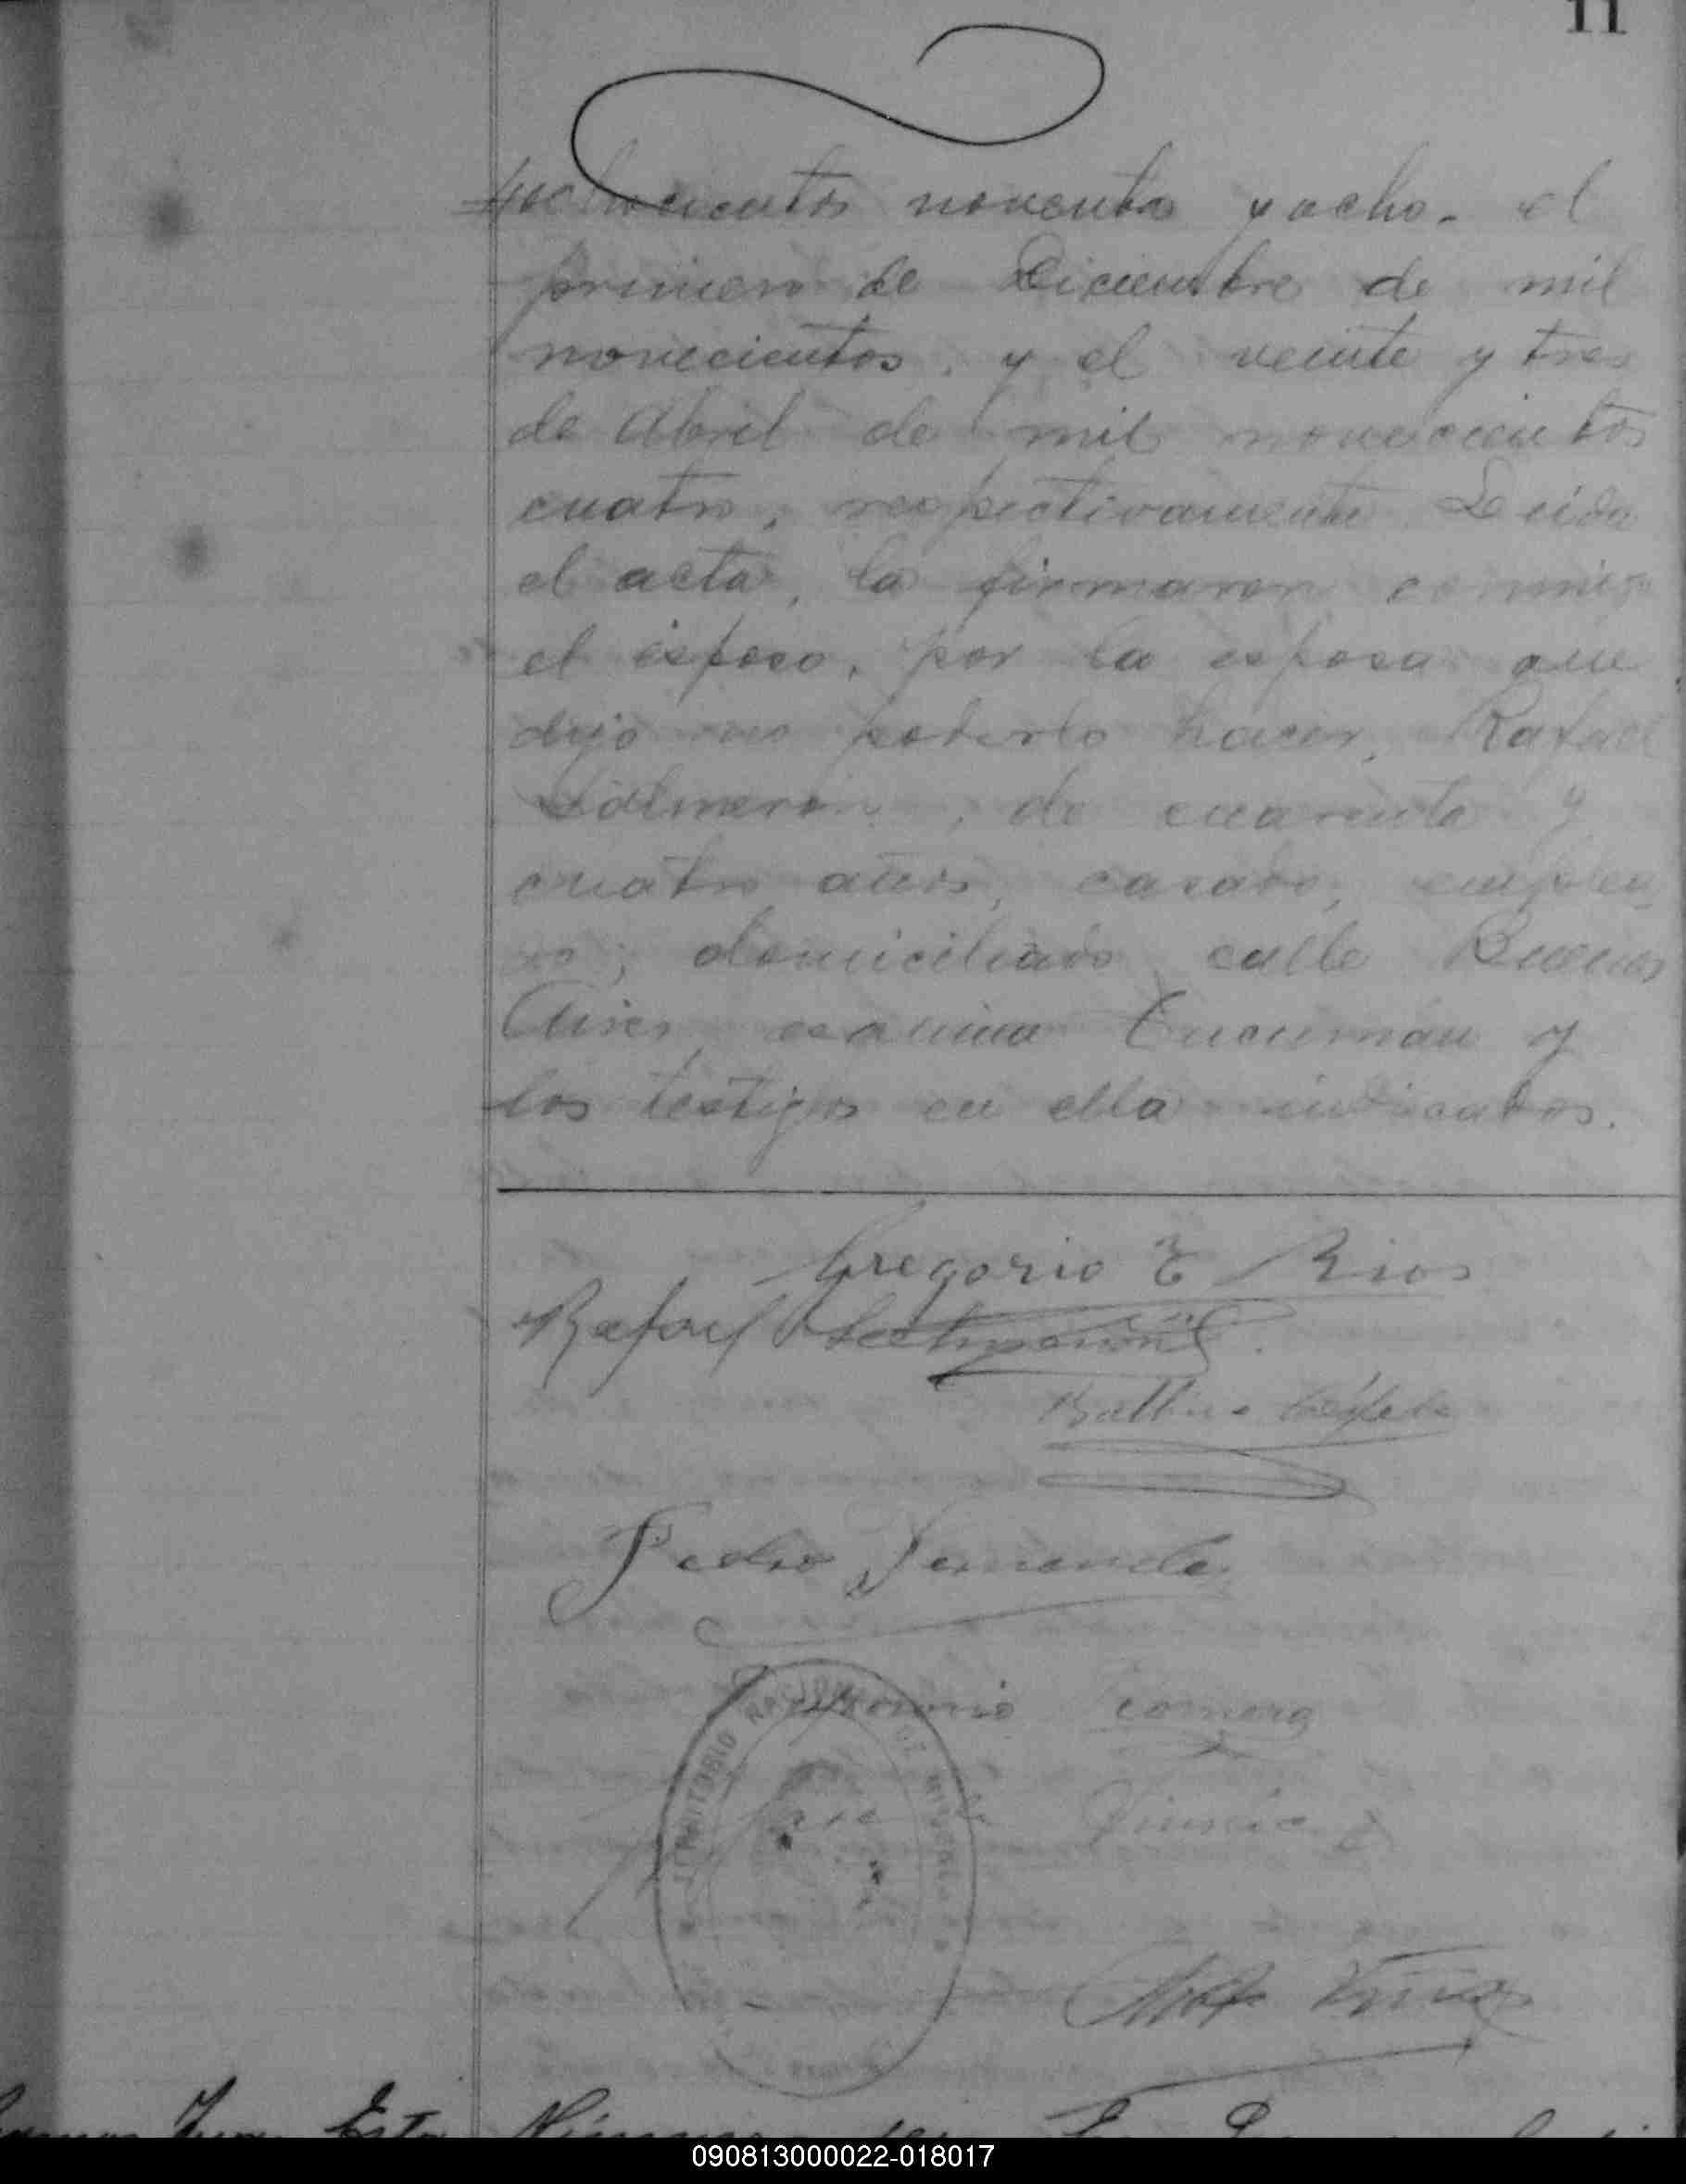 11
ochocientos noventa y ocho. el
primero de Diciembre de mil
novecientos, y el veinte y tres
de Abril de mil novecientos
cuatro, respectivamente. Leida
el acta, la firmaron conmigo
el esposo, por la esposa que
dijo no poderlo hacer, Rafael
de cuarenta y
cuatro años, casado, emplea
domiciliado calle Buenos
Aires esquina Tucumán y
los testigos en ella indicados.
Gregorio E Rios
Rafael
Pedro Fernandez
TERRITORIO NACIONAL DE MISIONES
Esta
090813000022-018017